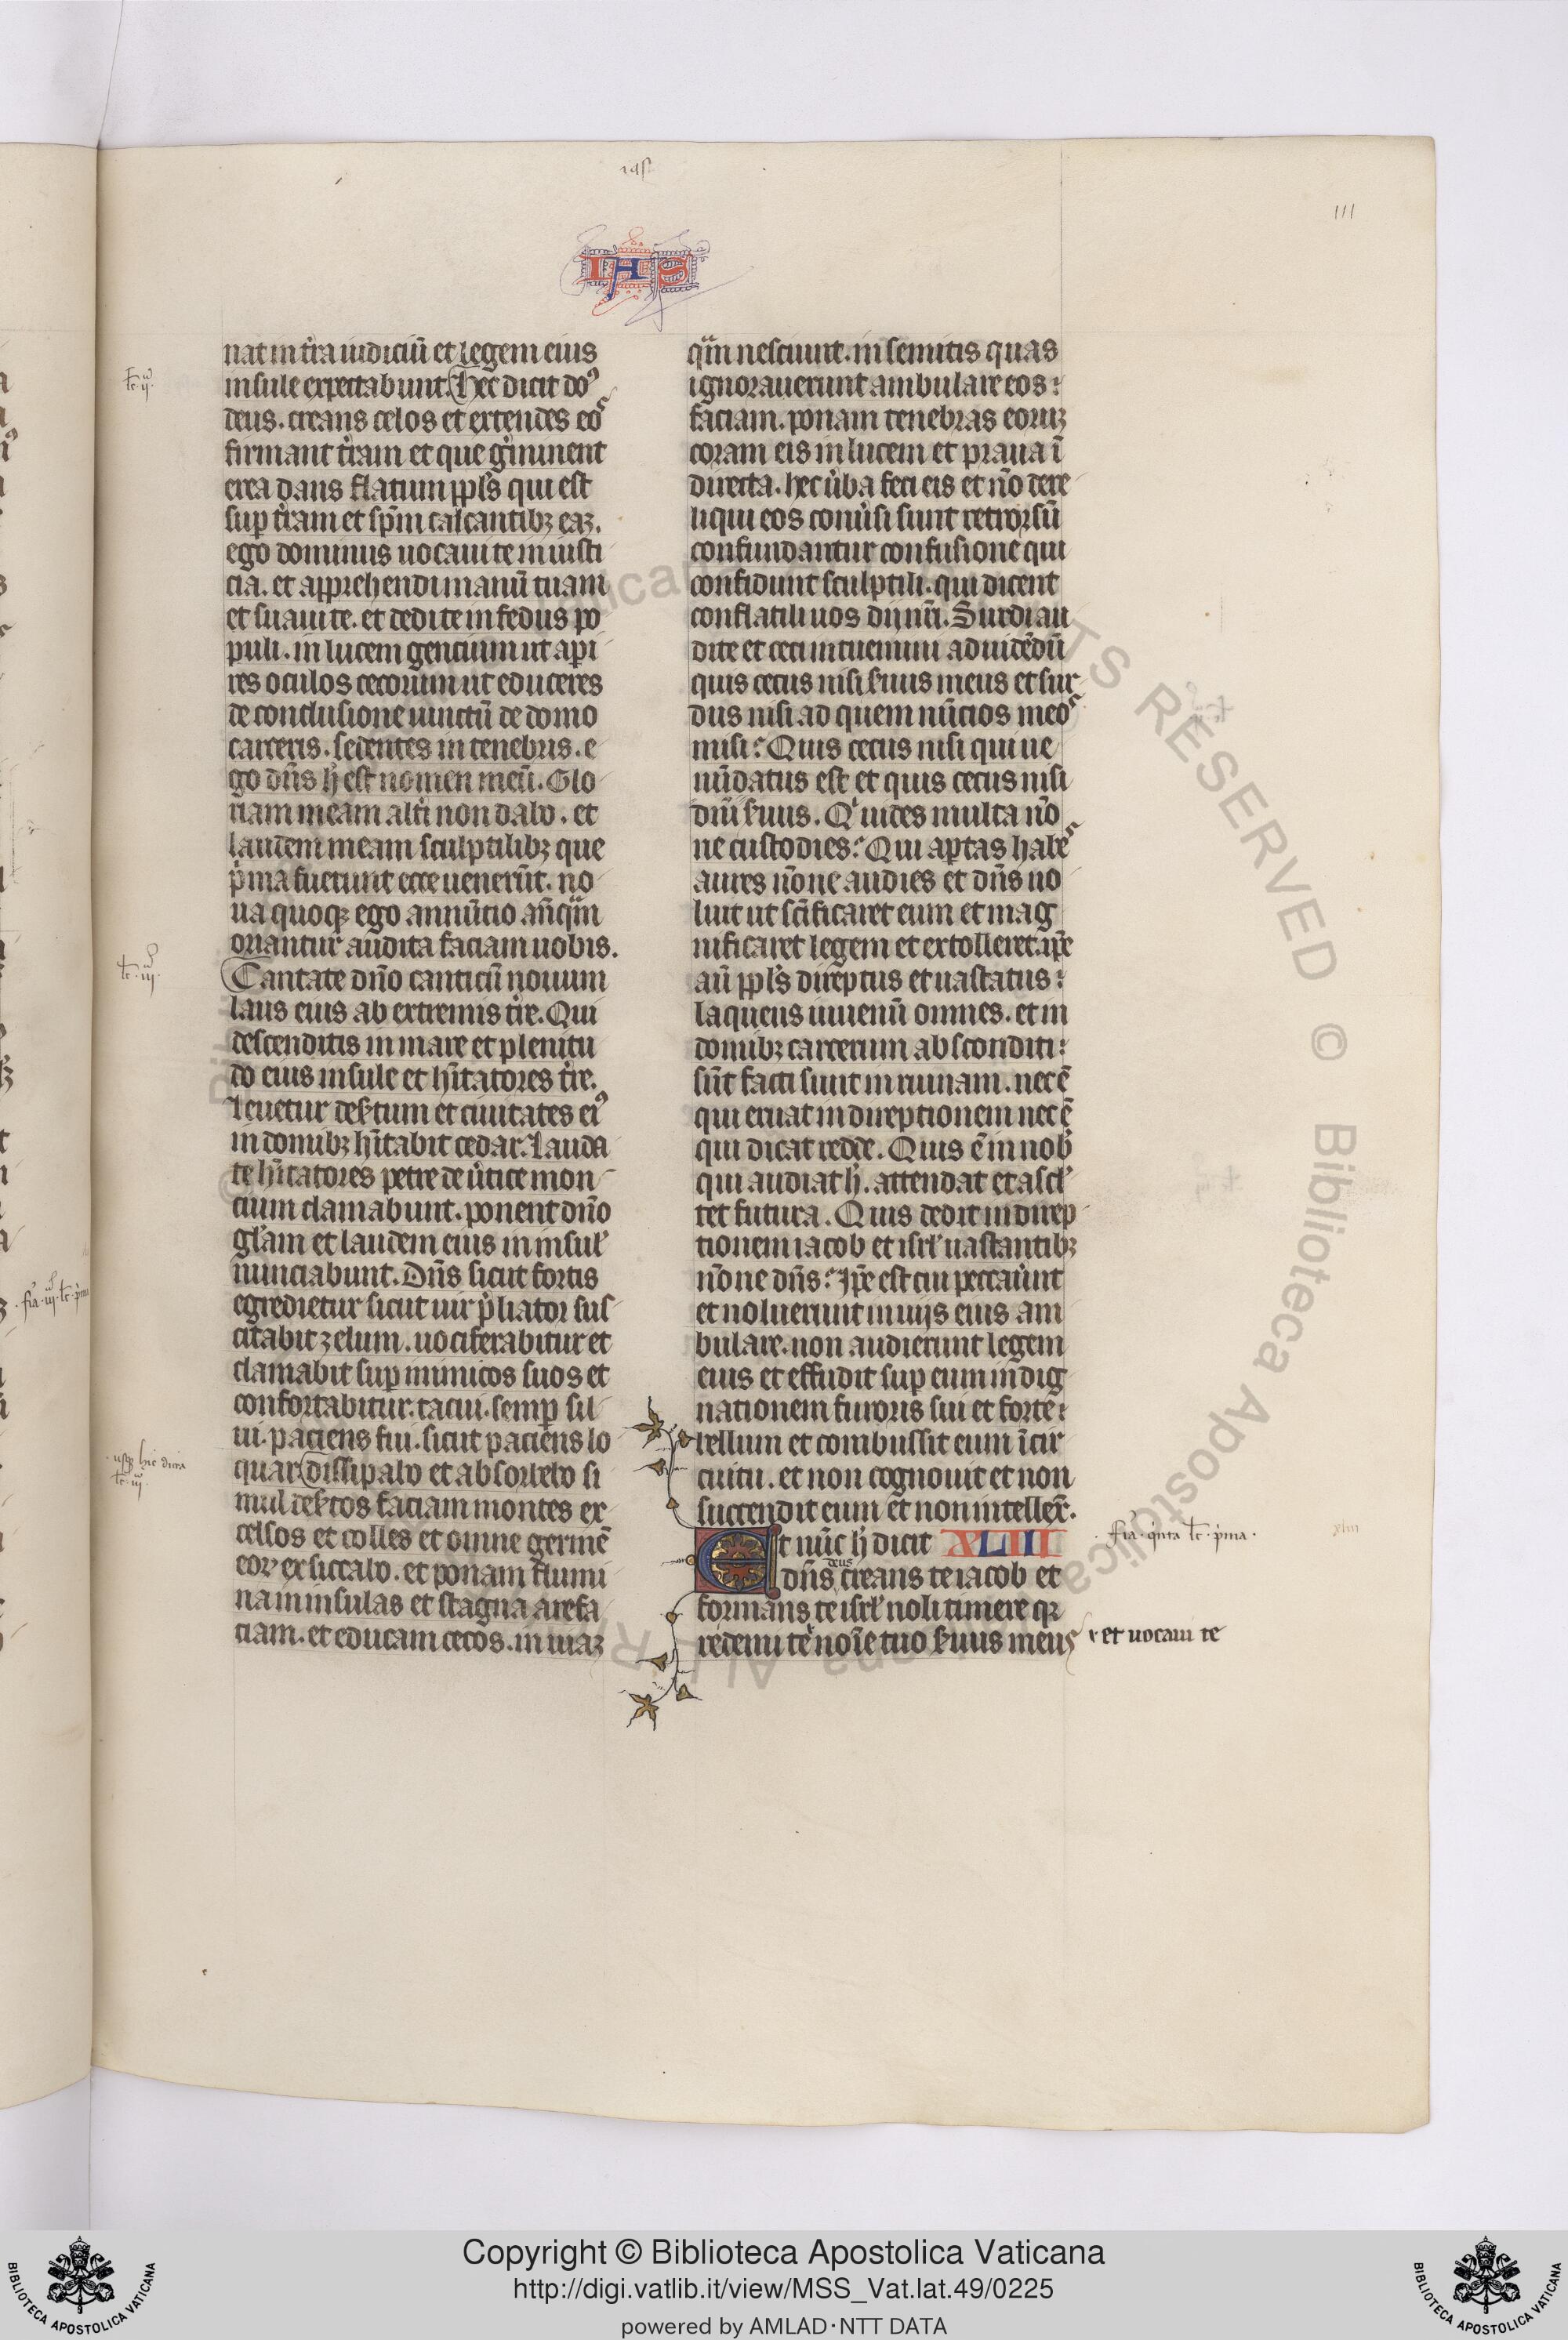 111
IHS
nat in t̄ra iudiciū et legem eius
insule expectabunt. Hec dicit doꝰ
deus. creans celos et extendēs eos
firmans t̄ram et que gīminent
ex ea dans flatum ppl̄s qui est
suꝑ t̄ram et sp̄m calcantibꝫ eaꝫ.
ego dominus uocaui te in iusti
cia. et apprehendi manū tuam
et suaui te. et dedi te in fedus po
puli. in lucem gencium ut apı
res oculos cecorum ut educeres
de conclusione uinctū de domo
carceris. sedentes in tenebris. e
go dn̄s h̄ est nomen meū. Glo
riam meam alt̄i non dabo. et
laudem meam sculptilibꝫ que
p̄ma fuerunt ecce uenerūt. no
ua quoqꝫ ego annūtio an̄qm̄
oriantur audita faciam uobis.
Cantate dn̄o canticū nouum
laus eius ab extremis t̄re. Qui
descenditis in mare et plenitu
do eius insule et hītatores t̄re.
leuetur desertum et ciuitates eiꝰ
in domibꝫ hītabit cedar. Lauda
te hītatores petre de ūtice mon
cium clamabunt. ponent dn̄o
gl̄am et laudem eius in insul̄
nunciabunt. Dn̄s sicut fortis
egredietur sicut uir p̄liator sus
citabit zelum. uociferabitur et
clamabit suꝑ inimicos suos et
confortabitur. tacui. semꝑ sil
ui. paciens fui. sicut paciens lo
quar dissipabo et absorbebo si
mul desertos faciam montes ex
celsos et colles et omne germē
eoꝝ exsiccabo. et ponam flumi
na in insulas et stagna arefa
ciam. et educam cecos. in uiaꝫ
qm̄ nesciunt. in semitis quas
ignorauerunt ambulare eos:
faciam. ponam tenebras eoruꝫ
coram eis in lucem et praua ī
directa. hec ūba feci eis et nō dere
liqui eos conūsi sunt retrorsū
confundantur confusione qui
confidunt sculptili. qui dicent
conflatili uos dij nr̄i. Surdi au
dite et ceci intuemini ad uidēdū
quis cecus nisi s̄uus meus et sur
dus nisi ad quem nūcios meos
misi? Quis cecus nisi qui ue
nūdatus est et quis cecus nisi
dn̄i s̄uus. Qi uides multa nō
ne custodies? Qui aꝑtas habes
aures nōne audies et dn̄s uo
luit ut sc̄ificaret eum et mag
nificaret legem et extolleret. ip̄e
aū ppl̄s direptus et uastatus:
laqueus iuuenū omnes. et in
domibꝫ carcerum absconditi:
sūt facti sunt in ruinam. nec ē
qui eruat in direptionem nec ē
qui dicat redde. Quis ē in nob̄
qui audiat h̄. attendat et ascl̄
tet futura. Quis dedit in direp
tionem iacob et isrl̄ uastantibꝫ
nōne dn̄s? Ip̄e est cui peccaūunt
et noluerunt in uijs eius am
bulare. non audierunt legem
eius et effudit suꝑ eum indig
nationem furoris sui et forte:
bellum et combussit eum ī cir
cuitu. et non cognouit et non
succendit eum et non intellex̄.
Et nūc h̄ dicit XLIII
dn̄s deus creans te iacob et
formans te isrl̄ noli timere qꝛ
redemi te noīe tuo s̄uus meus
et uocaui te
Copyright © Biblioteca Apostolica Vaticana
http://digi.vatlib.it/view/MSS_Vat.lat.49/0225
powered by AMLAD·NTT DATA
BIBLIOTECA APOSTOLICA VATICANA
BIBLIOTECA APOSTOLICA VATICANA